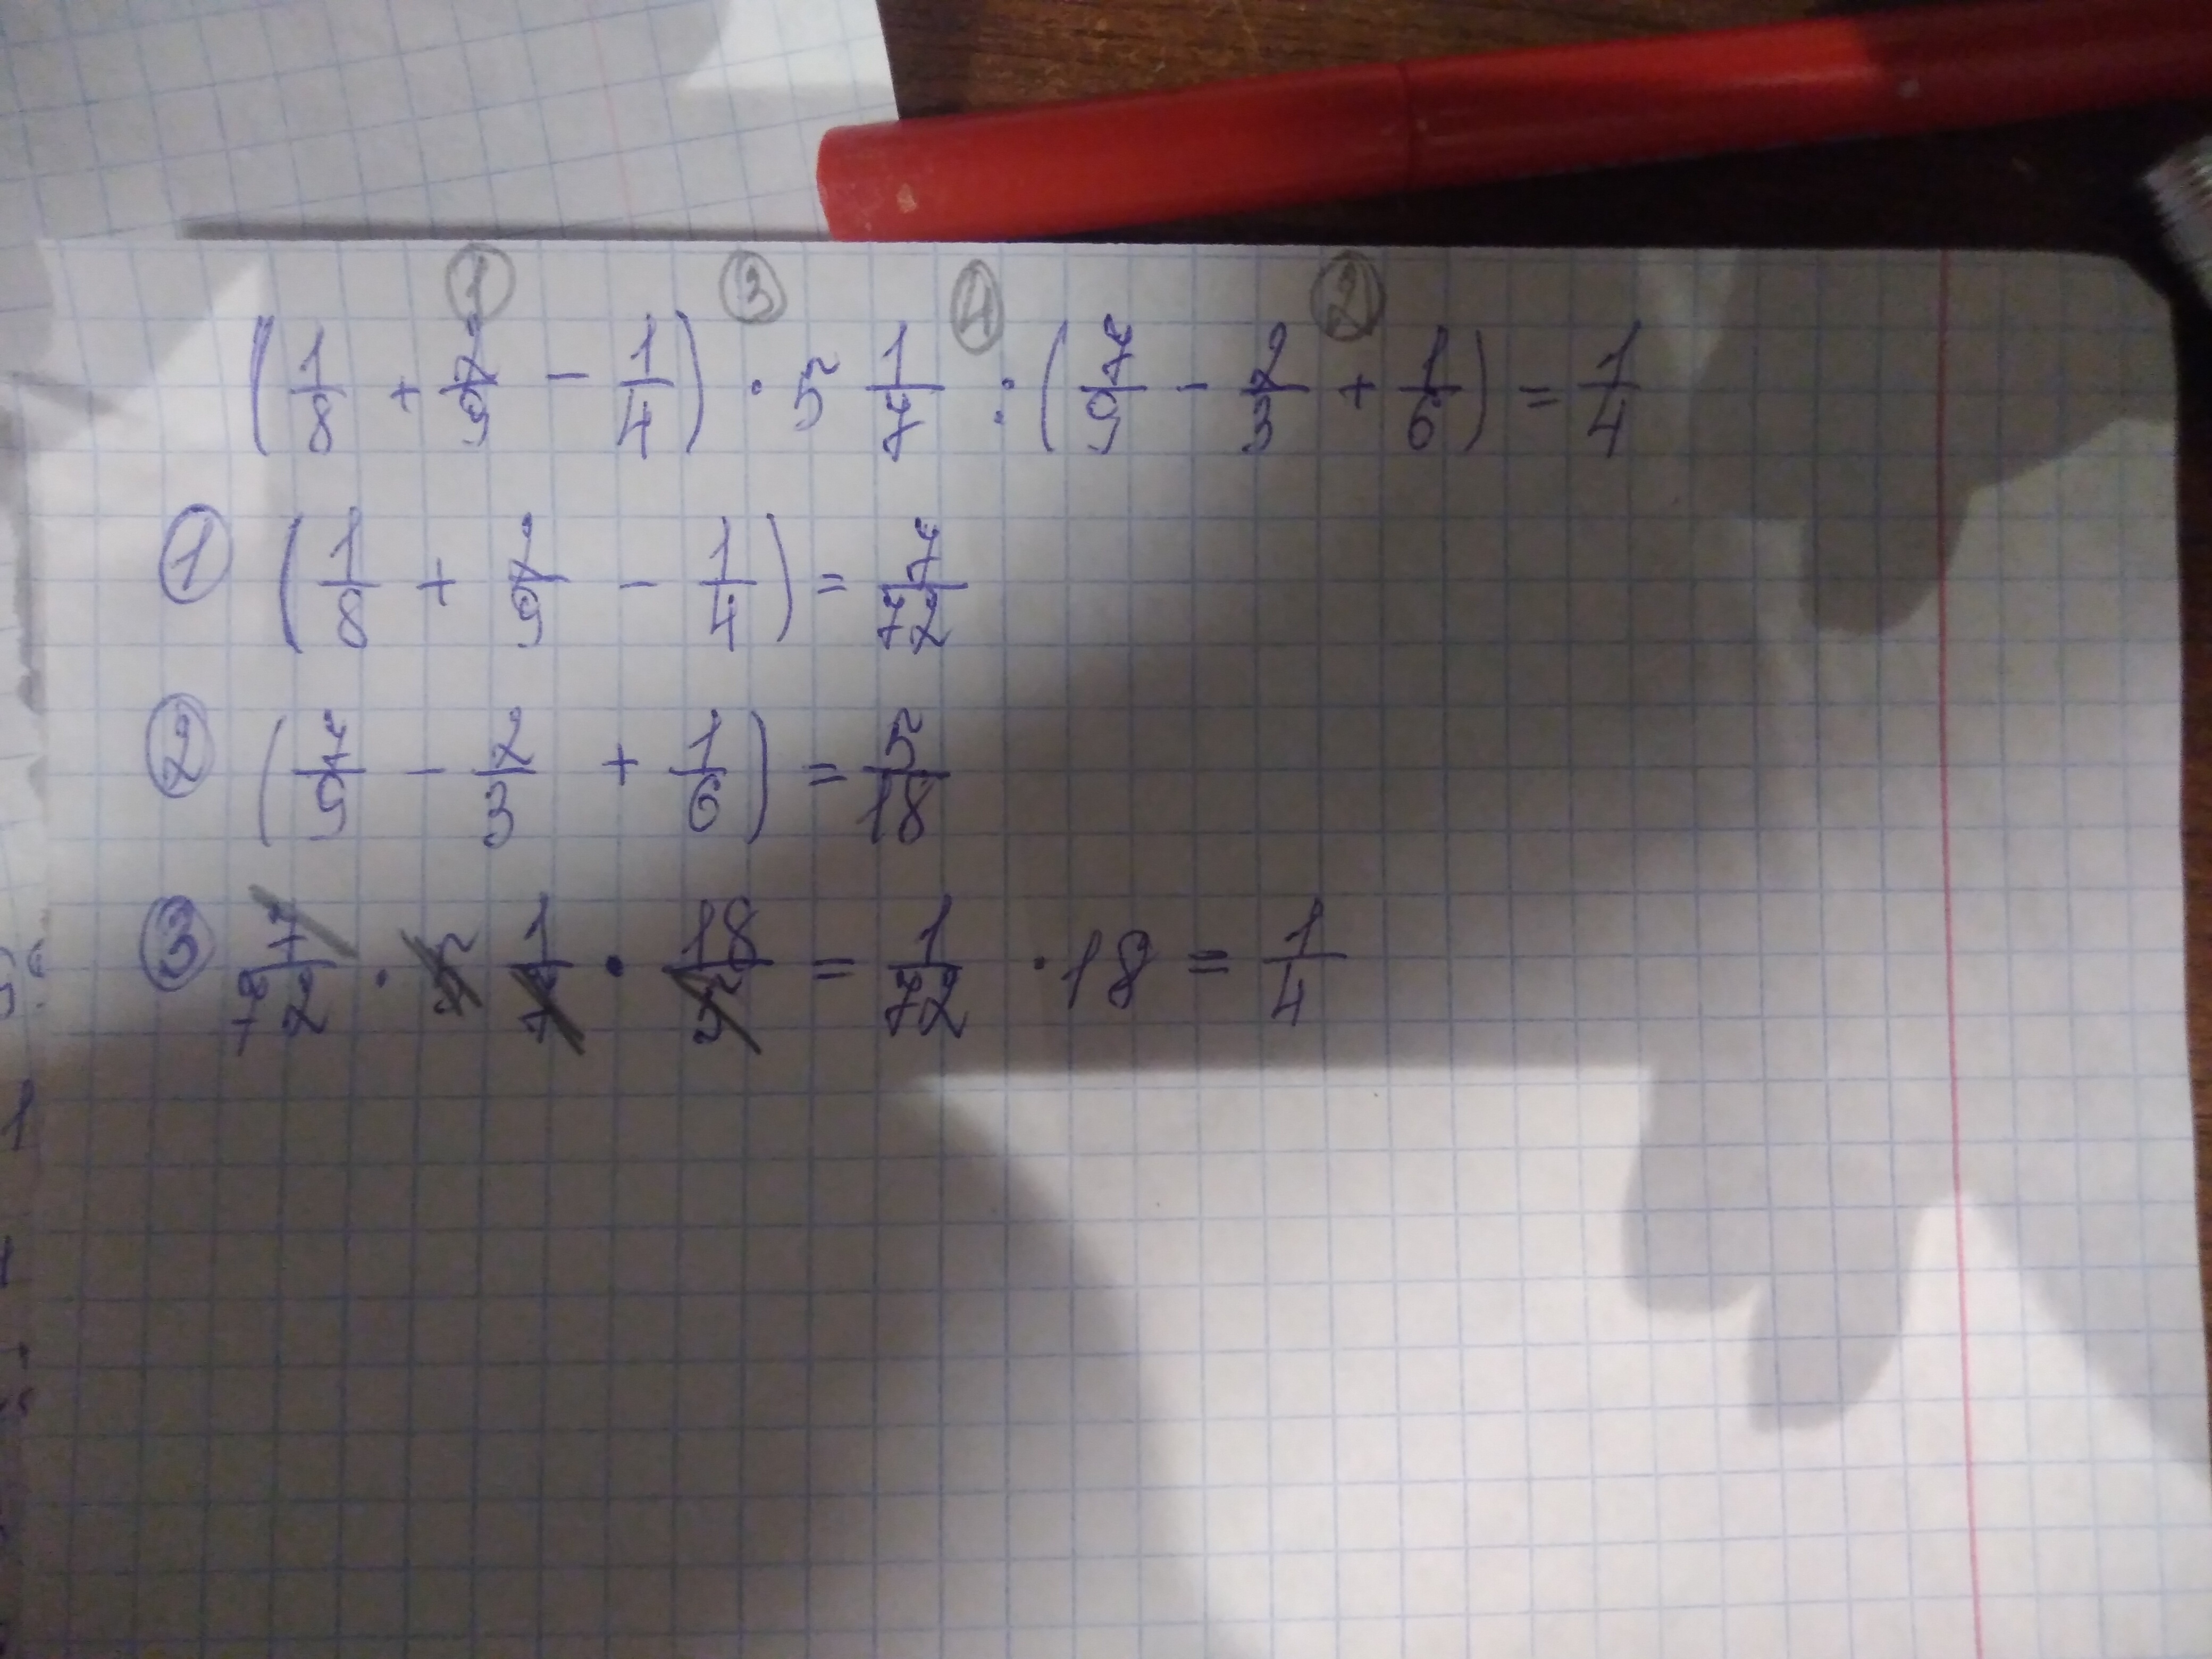 ① ③ ④ ②
(1/8 + 2/9 - 1/4) · 5 1/7 : (7/9 - 2/3 + 1/6) = 1/4
① (1/8 + 2/9 - 1/4) = 7/72
② (7/9 - 2/3 + 1/6) = 5/18
③ 7/72 · 5 1/7 · 18/5 = 1/72 · 18 = 1/4